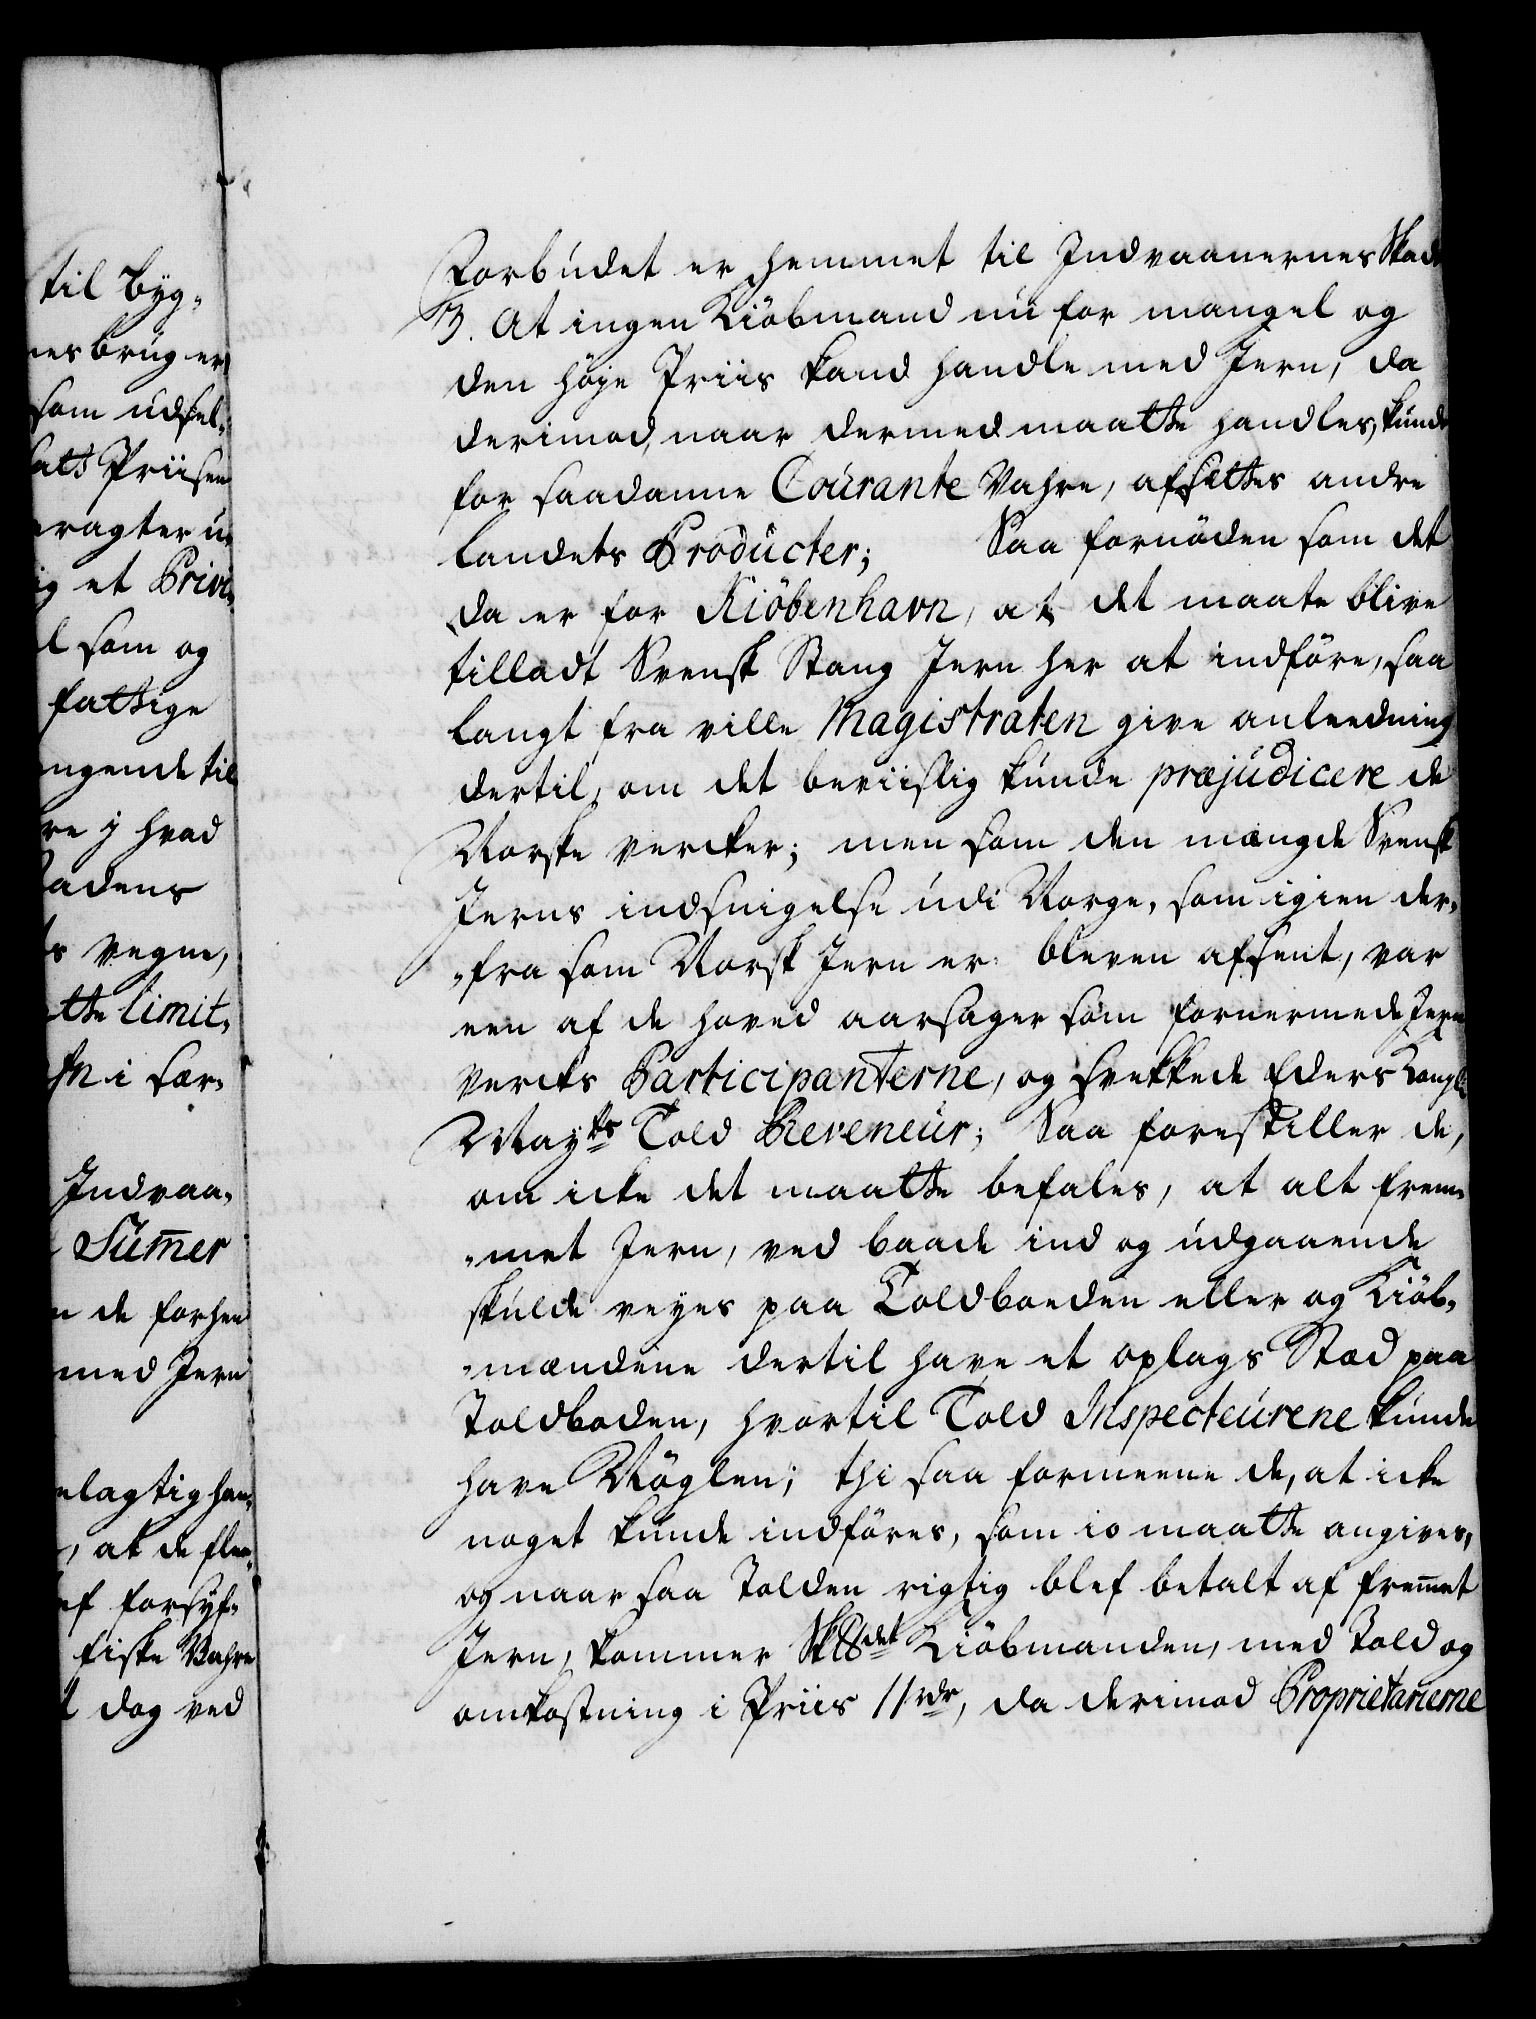 til byg-
nes brug er
som udsel-
satt Priisen
eragter u-
ig et Privi-
l som og
fattige
ngende til
re j hvad
adens
s vegne,
tte limit-
i sær-
Indvaa-
Sum̅er
n de forhen
med Jern
elagtig han-
, at de fler-
ef forsyf-
fiske Vahre
t dog ved
Forbudet er hemmet til Indvaanernes Skade
3. At ingen Kiöbmand nu for mangel og
den höje Priis kand handle med Jern, da
derimod, naar dermed maatte handles, kunde
for saadanne Courante Vahre, afsettes andre
Landets Producter; Saa fornöden som det
da er for Kiöbenhavn, at det maate blive
tilladt Svensk Stang Jern her at indföre, saa
langt fra ville Magistraten give anleedning
dertil, om det beviislig kunde præjudicere de
Norske Vercker; men som den mængde Svensk
Jerns indsnigelse udi Norge, som igien der-
-fra som Norsk Jern er bleven afsent, var
een af de hoved aarsager som fornermede Jern
Vercks Participanterne, og svekkede Eders Kongl
Mayts Told Reveneur; Saa forestiller de,
om icke det maatte befales, at alt frem-
-met Jern, ved baade ind og udgaaende
skulde veyes paa Toldboeden eller og Kiöb-
-mændene dertil have et oplags Stæd paa
Toldboden, hvortil Told Inspecteurene kunde
have Nöglen; thi saa formeene de, at icke
noget kunde indföres, som io maatte angives,
og naar saa Tolden rigtig blef betalt af frem̅et
Jern, kommer Sk℔det Kiöbmanden, med Told og
omkostning i Priis 11 rdr, da derimod Proprietarierne